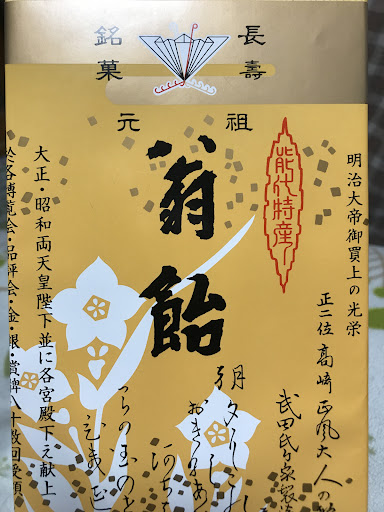 長壽
銘菓
元祖
明治大帝御買上の光栄
正二位 高崎正風大人の
武田氏が家製
能代特産
翁飴
大正・昭和両天皇陛下並に各宮殿下え献上
於各博覧会・品評会・金・銀・賞牌八十数回受領